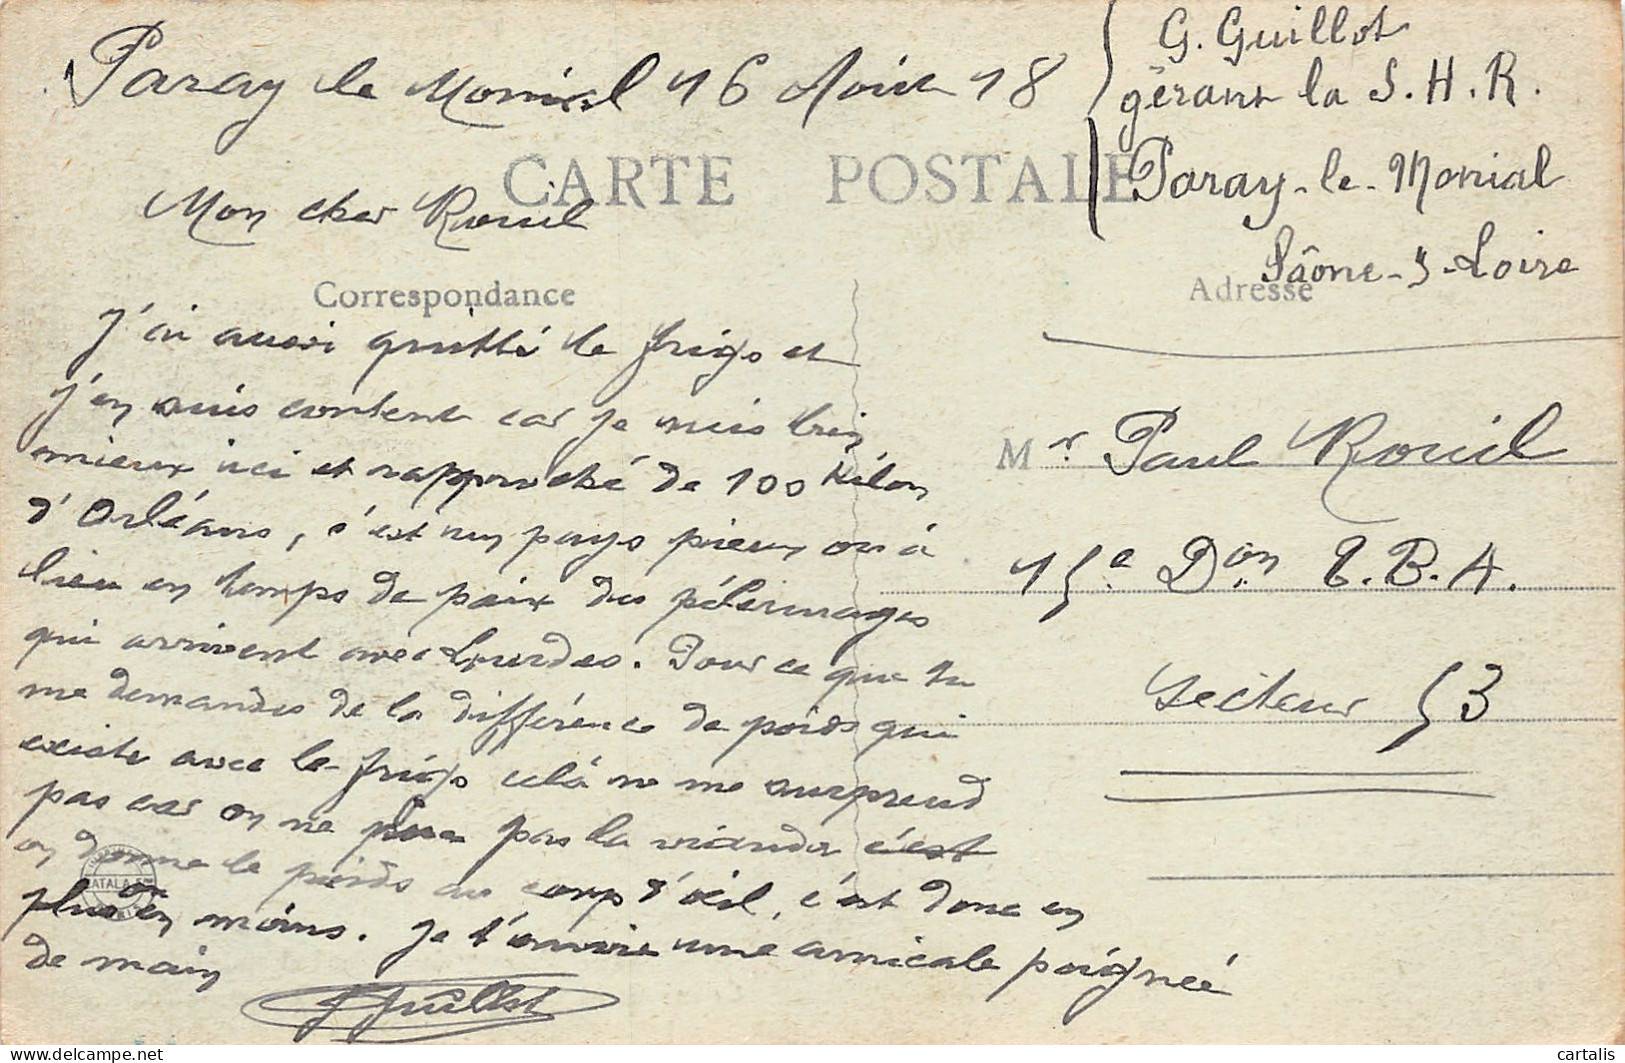 Paray le Monial 16 Août 18
G. Guillot
gérant la S.H.R.
Paray-le-Monial
Sâone-s-Loire
CARTE POSTALE
Mon cher Rouil
Correspondance
Adresse
J'ai aussi quitté le frigo et
j'en suis content car je suis bien
mieux ici et rapproché de 100 kilom
d'Orléans, c'est un pays pieux où à
lieu en temps de paix des pélerinages
qui arrivent avec Lourdes. Pour ce que tu
me demandes de la différence de poids qui
existe avec le frigo celà ne me surprend
pas car on ne pas la viande c'est
on donne le poids au coup d'œil, c'est donc en
plus en moins. Je t'envoie une amicale poignée
de main
Guillot
Mr Paul Rouil
15e Don B.A.
Secteur 53
CATALA
cartalis